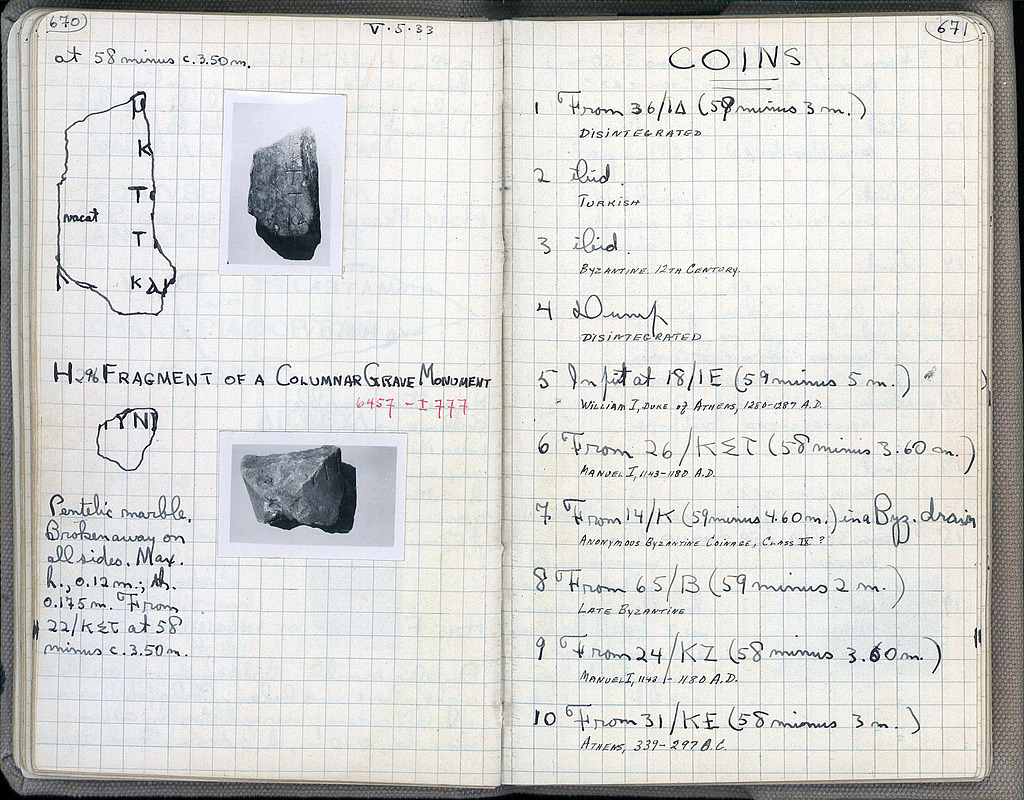 670
V·5·33
at 58 minus c.3.50m.
K
T
T
vacat
H296 FRAGMENT OF A COLUMNAR GRAVE MONUMENT
6457 - I 777
ΓΥΝ
Pentelic marble.
Broken away on
all sides. Max.
h., 0.12 m.; th.
0.175 m. From
22/ΚΣΤ at 58
minus c.3.50m.
671
COINS
1 From 36/ΙΔ (58 minus 3 m.)
DISINTEGRATED
2 ibid.
TURKISH
3 ibid.
BYZANTINE 12TH CENTURY.
4 Dump
DISINTEGRATED
5 In pit at 18/ΙΕ (59 minus 5 m.)
WILLIAM I, DUKE OF ATHENS, 1280-1287 A.D.
6 From 26/ΚΣΤ (58 minus 3.60 m.)
MANUEL I, 1143-1180 A.D.
7 From 14/Κ (59 minus 4.60m.) in a Byz. drain
ANONYMOUS BYZANTINE COINAGE, CLASS IX ?
8 From 65/Β (59 minus 2 m.)
LATE BYZANTINE
9 From 24/ΚΖ (58 minus 3.60m.)
MANUEL I, 1143-1180 A.D.
10 From 31/ΚΕ (58 minus 3 m.)
ATHENS, 339-297 B.C.